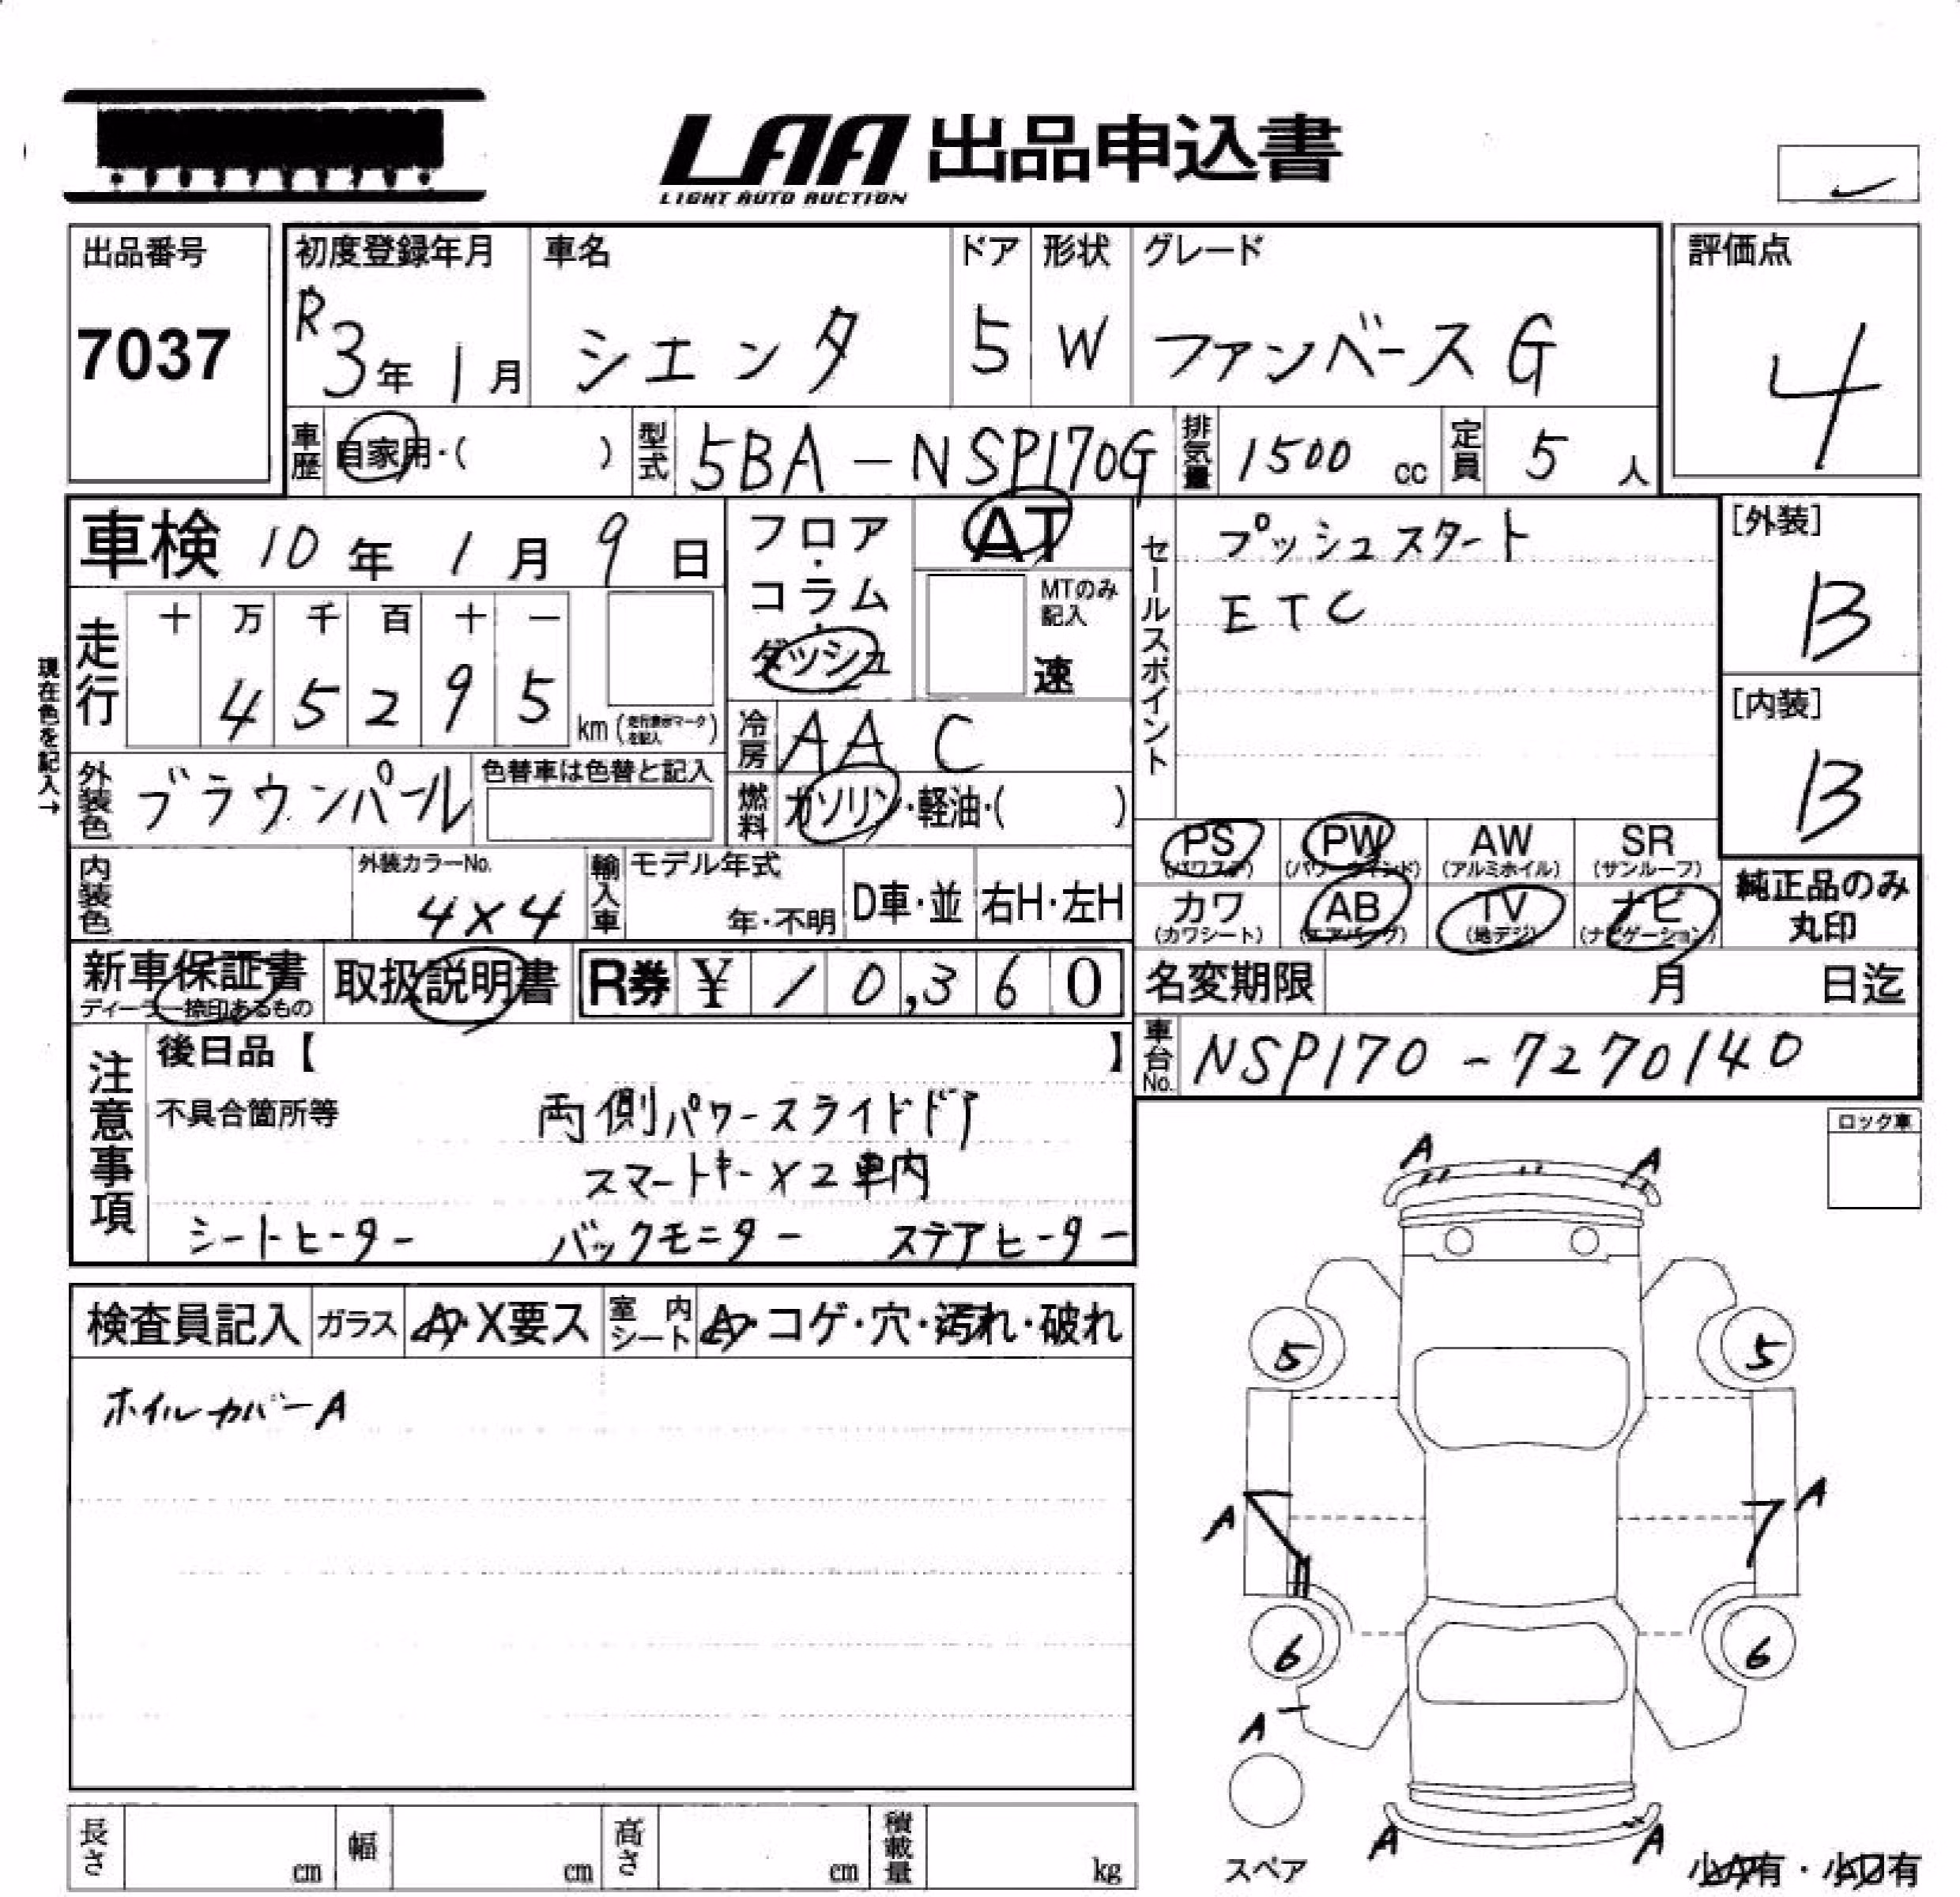 LAA 出品申込書
LIGHT AUTO AUCTION
出品番号
7037
初度登録年月 車名 ドア 形状 グレード
R3年1月 シエンタ 5 W ファンベースG
評価点
4
車歴 自家用・( ) 型式 5BA-NSP170G 排気量 1500 cc 定員 5 人
車検 10年1月9日
フロア・コラム・ダッシュ
AT
MTのみ記入
速
走行 十 万 千 百 十 一
4 5 2 9 5 km (走行表示マークを記入)
現在色を記入→
冷房 AAC
外装色 ブラウンパール 色替車は色替と記入
燃料 ガソリン・軽油・( )
内装色 外装カラーNo. 4×4
輸入車 モデル年式 年・不明 D車・並 右H・左H
セールスポイント
プッシュスタート
ETC
[外装]
B
[内装]
B
PS (パワステ) PW (パワーウィンド) AW (アルミホイル) SR (サンルーフ)
カワ (カワシート) AB (エアバッグ) TV (地デジ) ナビ (ナビゲーション)
純正品のみ丸印
新車保証書 ディーラー捺印あるもの 取扱説明書 R券 ¥10,360
名変期限 月 日迄
車台No. NSP170-7270140
注意事項
後日品【 】
不具合箇所等 両側パワースライドドア
スマートキー×2車内
シートヒーター バックモニター ステアヒーター
ロック車
検査員記入 ガラス A・X要ス 室内シート A・コゲ・穴・汚れ・破れ
ホイルカバーA
A A
5 5
A A
6 6
A
A A
スペア
小A有・小U有
長さ cm 幅 cm 高さ cm 積載量 kg